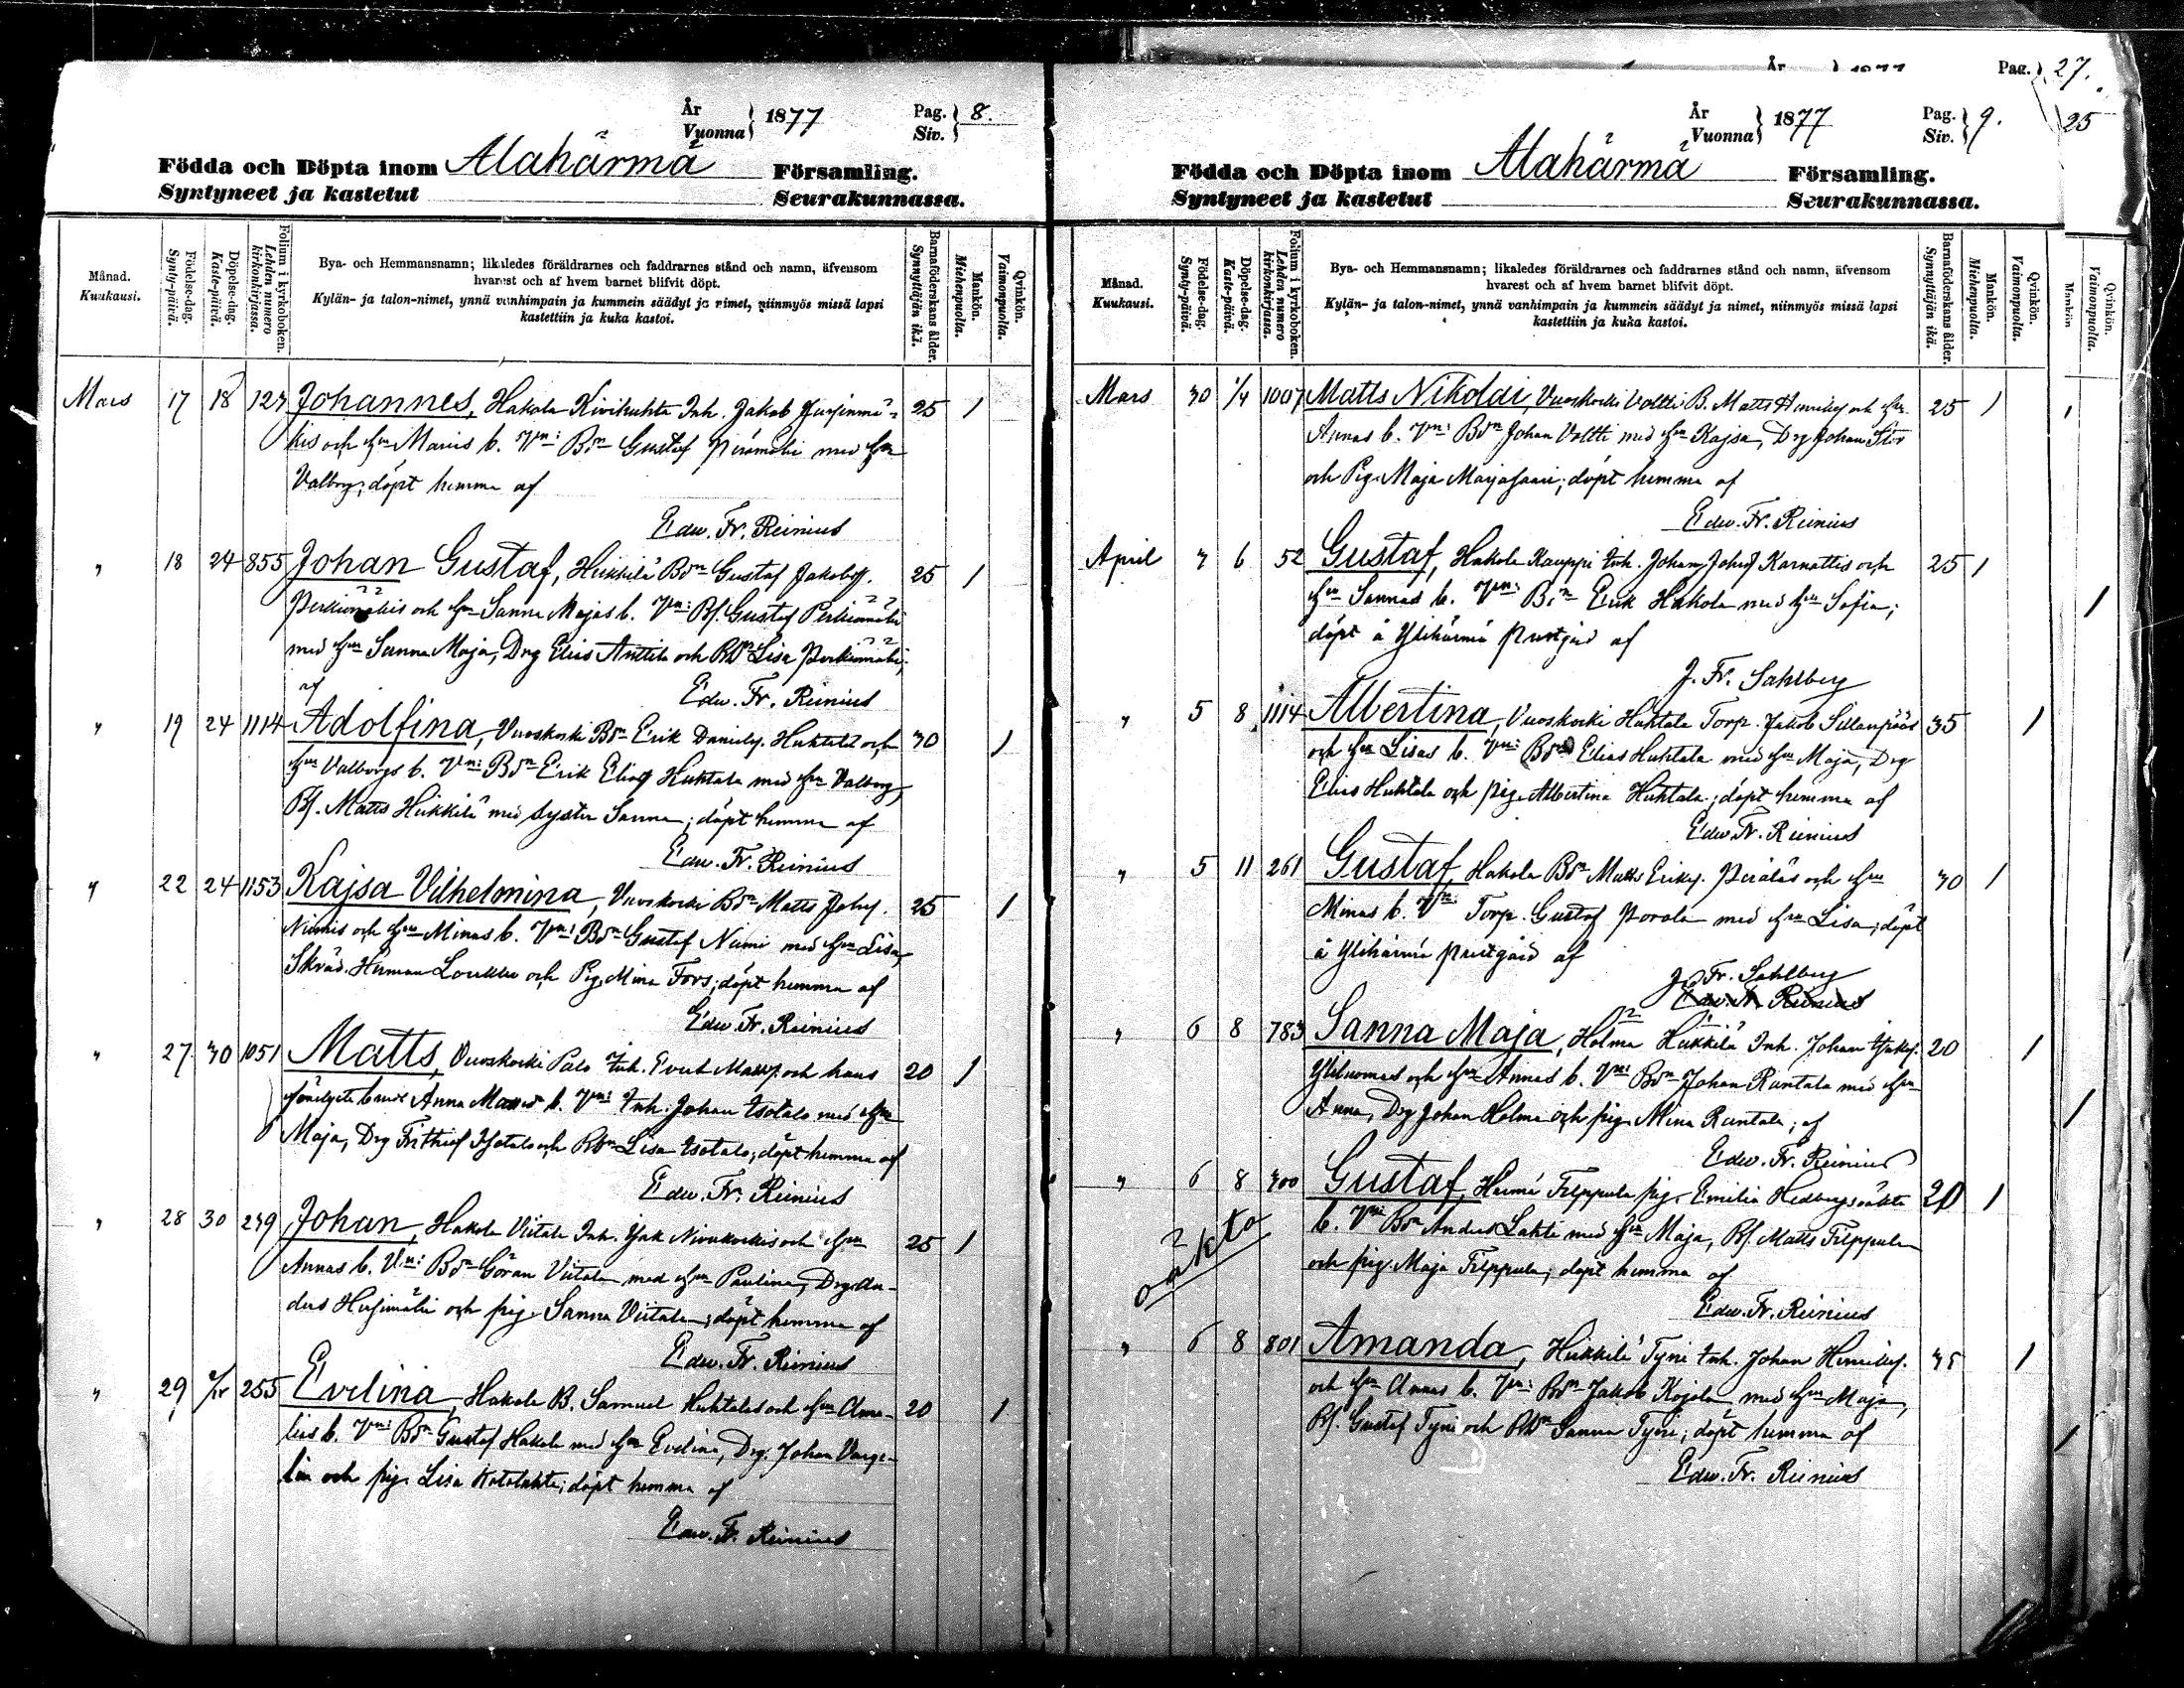 År
Vuonna } 1877 Pag. Siv. } 8.
Födda och Döpta inom Alahärmä Församling.
Syntyneet ja kastetut Seurakunnassa.
Månad. Kuukausi.
Födelse-dag. Synty-päivä.
Döpelse-dag. Kaste-päivä.
Folium i kyrkoboken. Lehden numero kirkonkirjassa.
Bya- och Hemmansnamn; likaledes föräldrarnes och faddrarnes stånd och namn, äfvensom
hvarest och af hvem barnet blifvit döpt.
Kylän- ja talon-nimet, ynnä vanhimpain ja kummein säädyt ja nimet, niinmyös missä lapsi
kastettiin ja kuka kastoi.
Barnaföderskans ålder. Synnyttäjän ikä.
Mankön. Miehenpuolta.
Qvinkön. Vaimonpuolta.
Mars 17 18 127 Johannes, Hakola Kivihuhta Inh. Jakob 25 1
och Hu Marias b. Vn: Bdn Gustaf med Hu
Valborg; döpt hemma af
Edw. Fr. Reinius
" 18 24 855 Johan Gustaf, Hukkila Bdn Gustaf Jakobsf. 25 1
Perkiömäkis och Hu Sanna Majas b. Vn: Bf. Gustaf Perkiömäki
med Hu Sanna Maja, Drg Elias Anttila och Lisa Perkiömäki;
af Edw. Fr. Reinius
" 19 24 1114 Adolfina, Vuoskoski Bdn Erik Danielsf. Huhtala och 30 1
Hu Valborgs b. Vn: Bdn Erik Eliasf Huhtala med Hu Valborg,
Bf. Matts Hukkila med syster Sanna; döpt hemma af
Edw. Fr. Reinius
" 22 24 1153 Kajsa Vilhelmina, Vuoskoski Bdn Matts Johsf. 25 1
Niemis och Hu Minas b. Vn: Bdn Gustaf Niemi med Hu Lisa,
Skräd. Herman Loukko och Pig. Mina Fors; döpt hemma af
Edw. Fr. Reinius
" 27 30 1051 Matts, Vuoskoski Palo Inh. Evert Mattsf. och hans 20 1
Anna b. Vn: Inh. Johan Isotalo med Hu
Maja, Drg Frithiof Isotalo och Lisa Isotalo; döpt hemma af
Edw. Fr. Reinius
" 28 30 249 Johan, Hakola Viitala Inh. Isak och Hu 25 1
Annas b. Vn: Bdn Göran Viitala med Hu Paulina, Drg An-
ders och pig. Sanna Viitala; döpt hemma af
Edw. Fr. Reinius
" 29 255 Evelina, Hakola B. Samuel Huhtalas och Hu Ama- 20 1
lias b. Vn: Bdn Gustaf Hakola med Hu Evelina, Drg. Johan
och pig. Lisa döpt hemma af
Edw. Fr. Reinius
Pag. 27.
År
Vuonna } 1877 Pag. Siv. } 9. 25
Födda och Döpta inom Alahärmä Församling.
Syntyneet ja kastetut Seurakunnassa.
Månad. Kuukausi.
Födelse-dag. Synty-päivä.
Döpelse-dag. Kaste-päivä.
Folium i kyrkoboken. Lehden numero kirkonkirjassa.
Bya- och Hemmansnamn; likaledes föräldrarnes och faddrarnes stånd och namn, äfvensom
hvarest och af hvem barnet blifvit döpt.
Kylän- ja talon-nimet, ynnä vanhimpain ja kummein säädyt ja nimet, niinmyös missä lapsi
kastettiin ja kuka kastoi.
Barnaföderskans ålder. Synnyttäjän ikä.
Mankön. Miehenpuolta.
Qvinkön. Vaimonpuolta.
Mankön
Qvinkön. Vaimonpuolta.
Mars 30 1/4 1007 Matts Nikolai, Vuoskoski Voltti B. Matts Henriksf och Hu 25 1
Annas b. Vn: Bdn Johan Voltti med Hu Kajsa, Drg Johan Stor
och Pig. Maja Marjasaari; döpt hemma af
Edw. Fr. Reinius
April 3 6 52 Gustaf, Hakola Kauppi Inh. Johan Johsf Karnattis och 25 1
Hu Sannas b. Vn: Bdn Erik Hakola med Hu Sofia;
döpt å Ylihärmä Prestgård af
J. Fr. Sahlberg
" 5 8 1114 Albertina, Vuoskoski Huhtala Torp. Jakob Sillanpääs 35 1
och Hu Lisas b. Vn: Bdn Elias Huhtala med Hu Maja, Drg
Elias Huhtala och Pig. Albertina Huhtala; döpt hemma af
Edw. Fr. Reinius
" 5 11 261 Gustaf, Hakola Bdn Matts Eriksf. Peräläs och Hu 30 1
Minas b. Vn: Torp. Gustaf Porola med Hu Lisa; döpt
å Ylihärmä Prestgård af
J. Fr. Sahlberg
Edw. Fr. Reinius
" 6 8 783 Sanna Maja, Holma Hukkila Inh. Johan Isaksf. 20 1
Yliluomas och Hu Annas b. Vn: Bdn Johan Rantala med Hu
Anna, Drg Johan Holma och pig. Mina Rantala; af
Edw. Fr. Reinius
" 6 8 300 Gustaf, Härmä Filppula pig. Emilia Hedbergs oäkta 20 1
b. Vn: Bdn Anders Lahti med Hu Maja, Bf. Matts Filppula
och pig. Maja Filppula; döpt hemma af
oäkta
Edw. Fr. Reinius
" 6 8 801 Amanda, Hukkila Tyni Inh. Johan Henriksf. 35 1
och Hu Annas b. Vn: Bdn Jakob Kojola med Hu Maja,
Bf. Gustaf Tyni och Sanna Tyni; döpt hemma af
Edw. Fr. Reinius